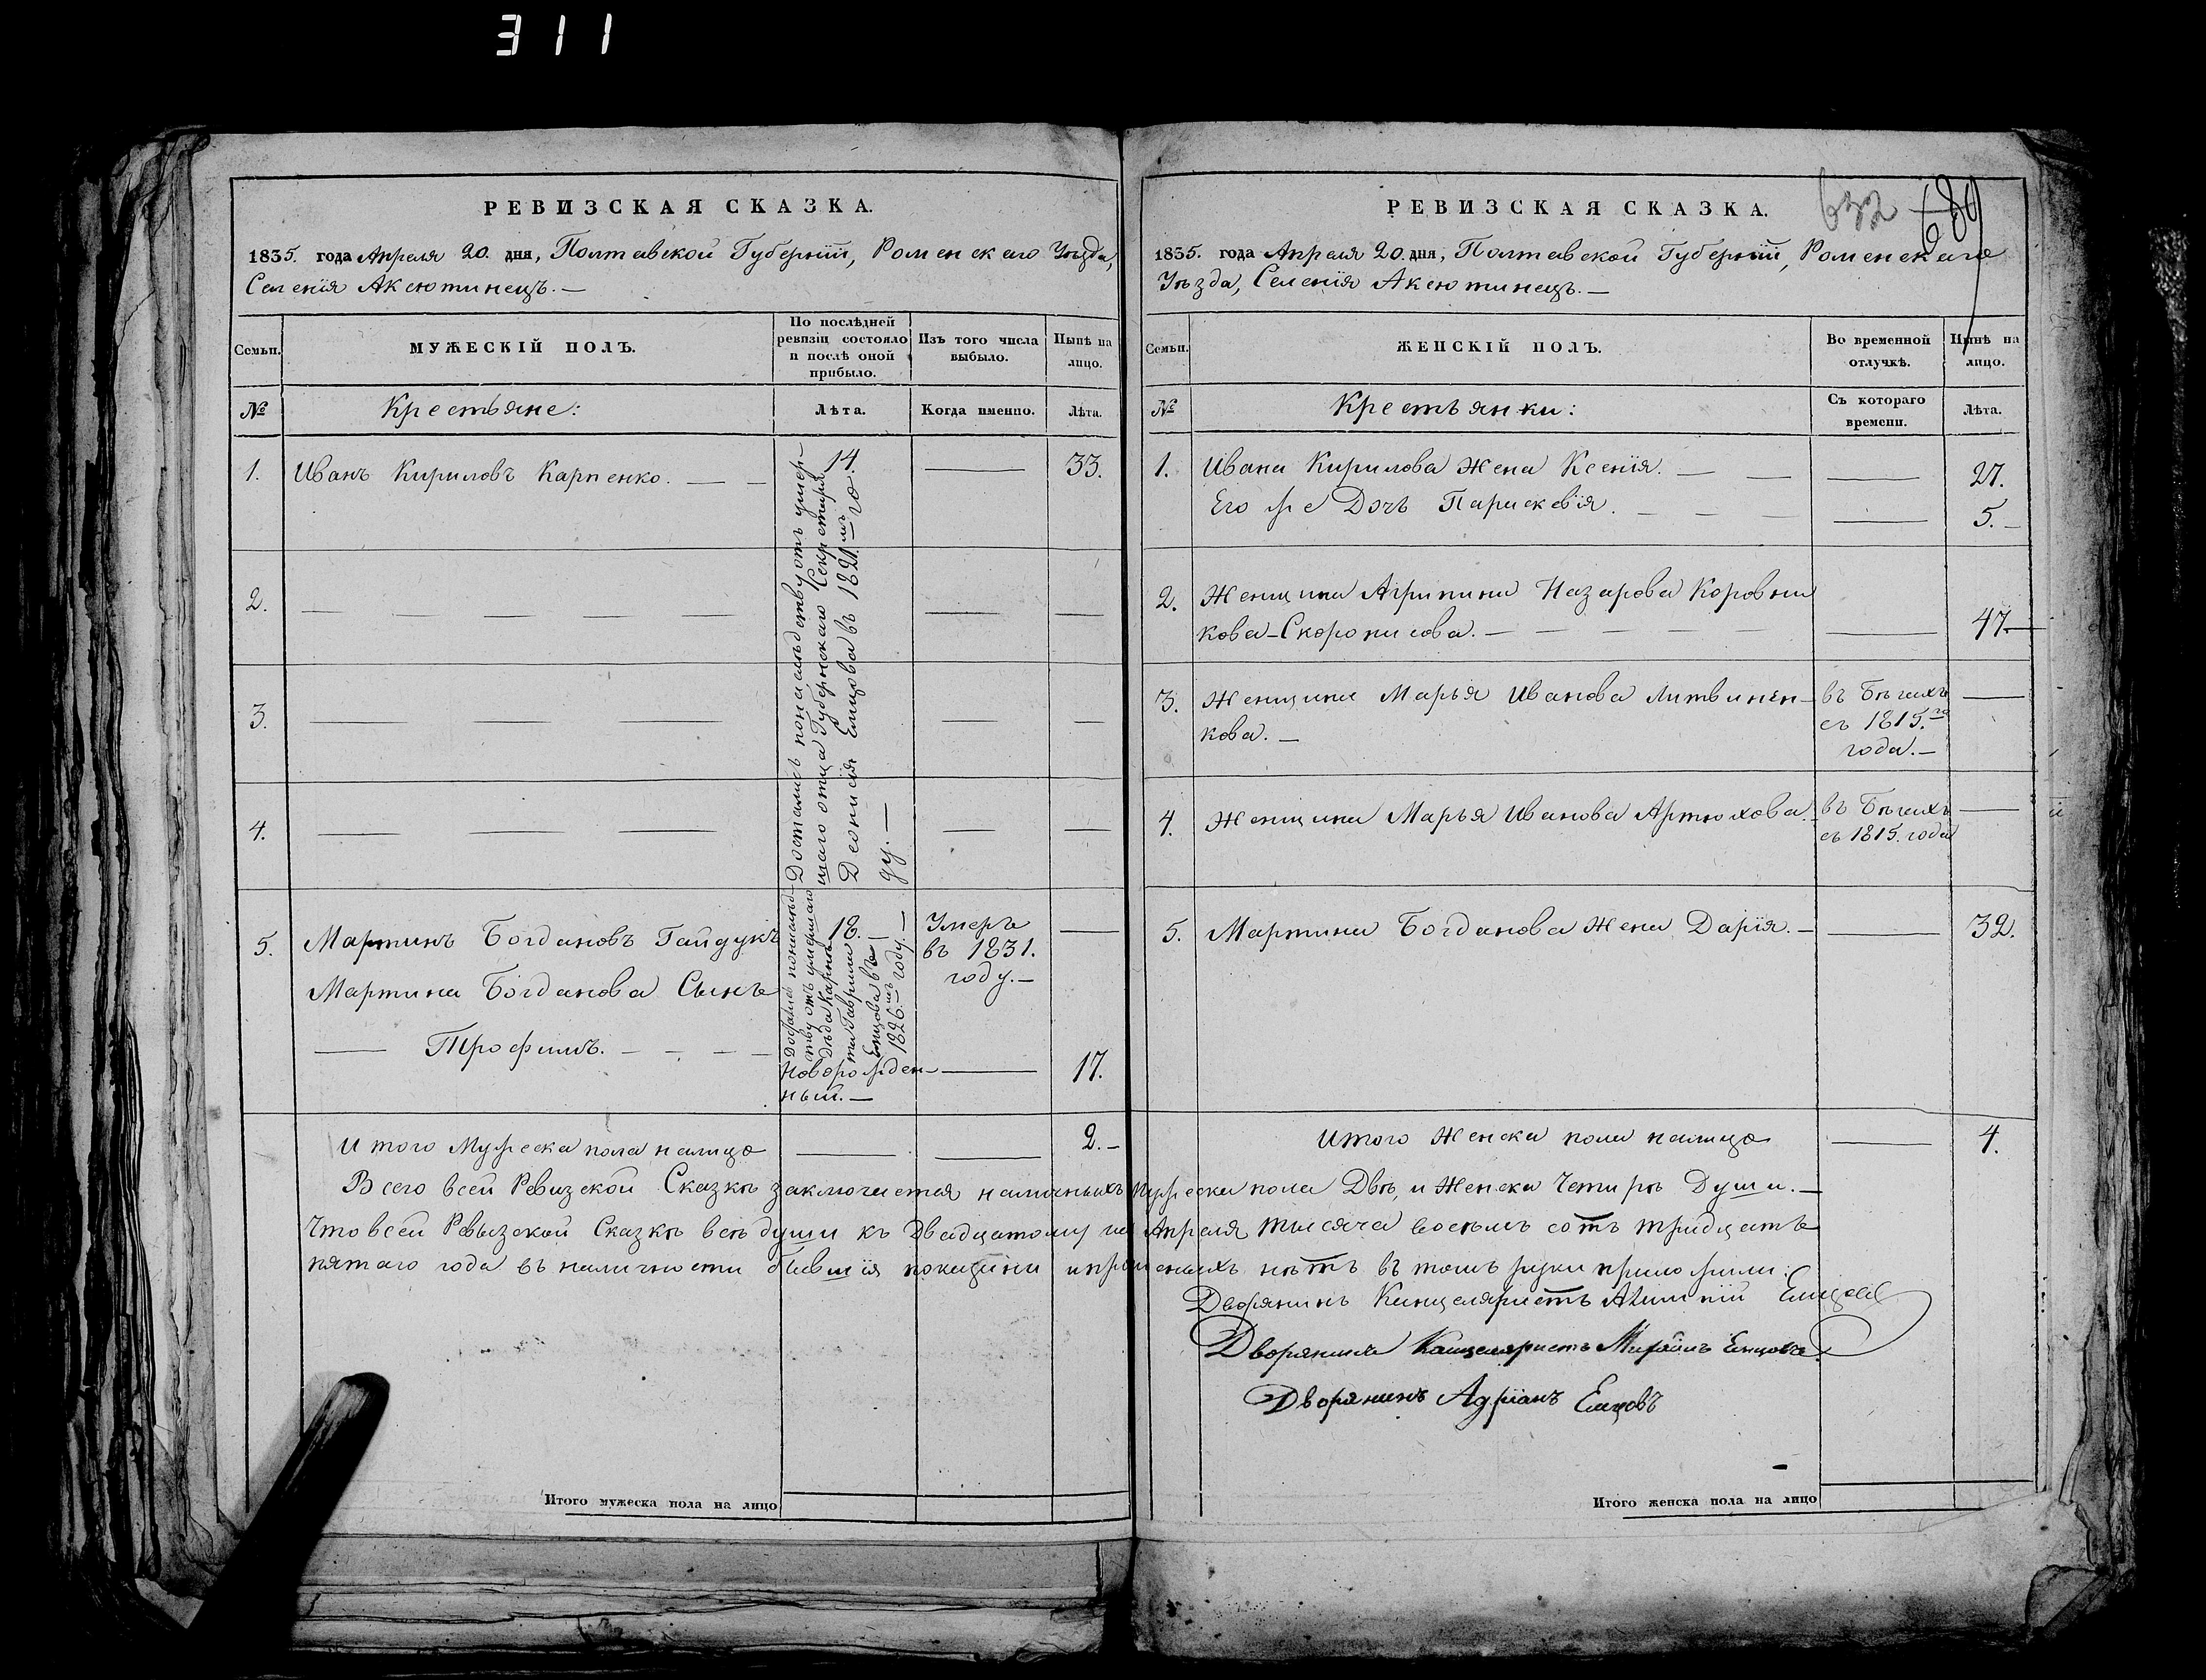 311
РЕВИЗСКАЯ СКАЗКА.
1835. года Апреля 20. дня, Полтавской Губерніи, Роменскаго Уѣзда,
Селенія Аксютинецъ. —
Семьи.
МУЖЕСКІЙ ПОЛЪ.
По послѣдней
ревизіи состояло
и послѣ оной
прибыло.
Изъ того числа
выбыло.
Нынѣ на
лицо.
№
Крестьяне:
Лѣта.
Когда именно.
Лѣта.
1. Иванъ Кириловъ Карпенко. — — 14. — 33.
Достались понаслѣдству отъ умер-
шаго отца Губернскаго Секретаря
Деонисія Емцова въ 1821мъ го
ду. —
2. — — — — — —
3. — — — —
4. — — — —
5. Мартинъ Богдановъ Гайдукъ 18. — Умеръ —
въ 1831.
году. —
Мартина Богданова Сынъ
— Трофимъ. — — — —
Достался понаслѣд-
ству отъ умершаго
Дѣда Карпа
Гаврила
Емцова въ
1826.мъ году. —
Новорожден- — 17.
ный. —
Итого Мужеска пола налицо — — 2. —
РЕВИЗСКАЯ СКАЗКА.
632 689
1835. года Апреля 20. дня, Полтавской Губерніи, Роменскаго
Уѣзда, Селенія Аксютинецъ. —
Семьи.
ЖЕНСКІЙ ПОЛЪ.
Во временной
отлучкѣ.
Нынѣ на
лицо.
№
Крестьянки:
Съ котораго
времени.
Лѣта.
1. Ивана Кирилова Жена Ксенія. — — — 27.
Его же Дочь Парискевія. — — — — 5. —
2. Женщина Агрипина Назарова Коровни
кова-Скорописова. — — — — — 47. —
3. Женщина Марья Иванова Литвинен- въ Бѣгахъ —
кова. — съ 1815.го
года. —
4. Женщина Марья Иванова Артюхова. въ Бѣгахъ —
съ 1815. года
5. Мартина Богданова Жена Дарія. — — 32.
Итого Женска пола налицо — 4.
Всего всей Ревизской Сказкѣ заключается наличныхъ Мужеска пола Двѣ, и Женска Четырѣ Души. —
Что всей Ревызской Сказкѣ всѣ души къ Двадцатому Апреля тысяча восемь сотъ тридцать
пятаго года въ наличности бывшія показаны и прописныхъ нѣтъ въ томъ руки приложили:
Дворянинъ Канцеляристъ Емцовъ
Дворянинъ Канцеляристъ Михаилъ Емцовъ.
Дворянинъ Адріанъ Емцовъ
Итого мужеска пола на лицо
Итого женска пола на лицо